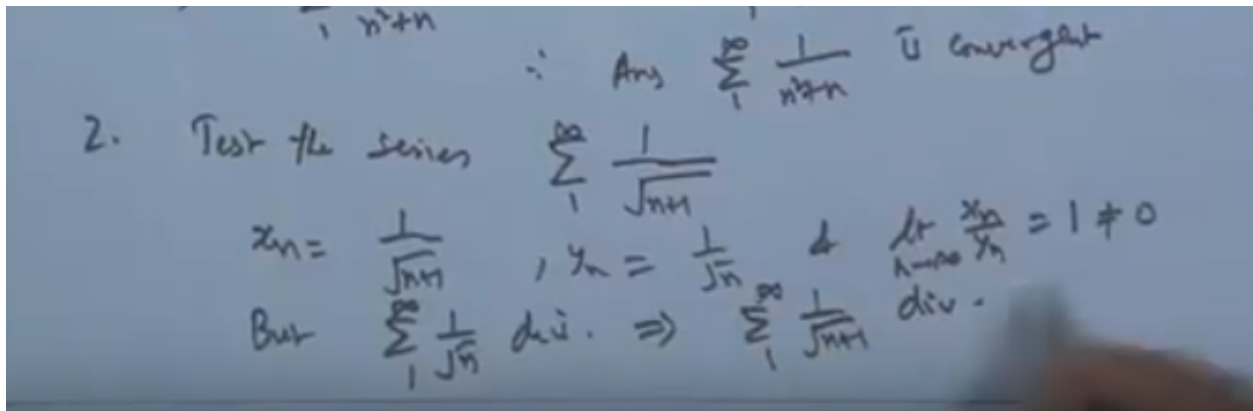 ∑_1 1/(n²+n)
∴ Ans ∑_1^∞ 1/(n²+n) is convergent
2. Test the series ∑_1^∞ 1/√(n+1)
x_n = 1/√(n+1) , y_n = 1/√n & lt_{n→∞} x_n/y_n = 1 ≠ 0
But ∑_1^∞ 1/√n div. ⇒ ∑_1^∞ 1/√(n+1) div.